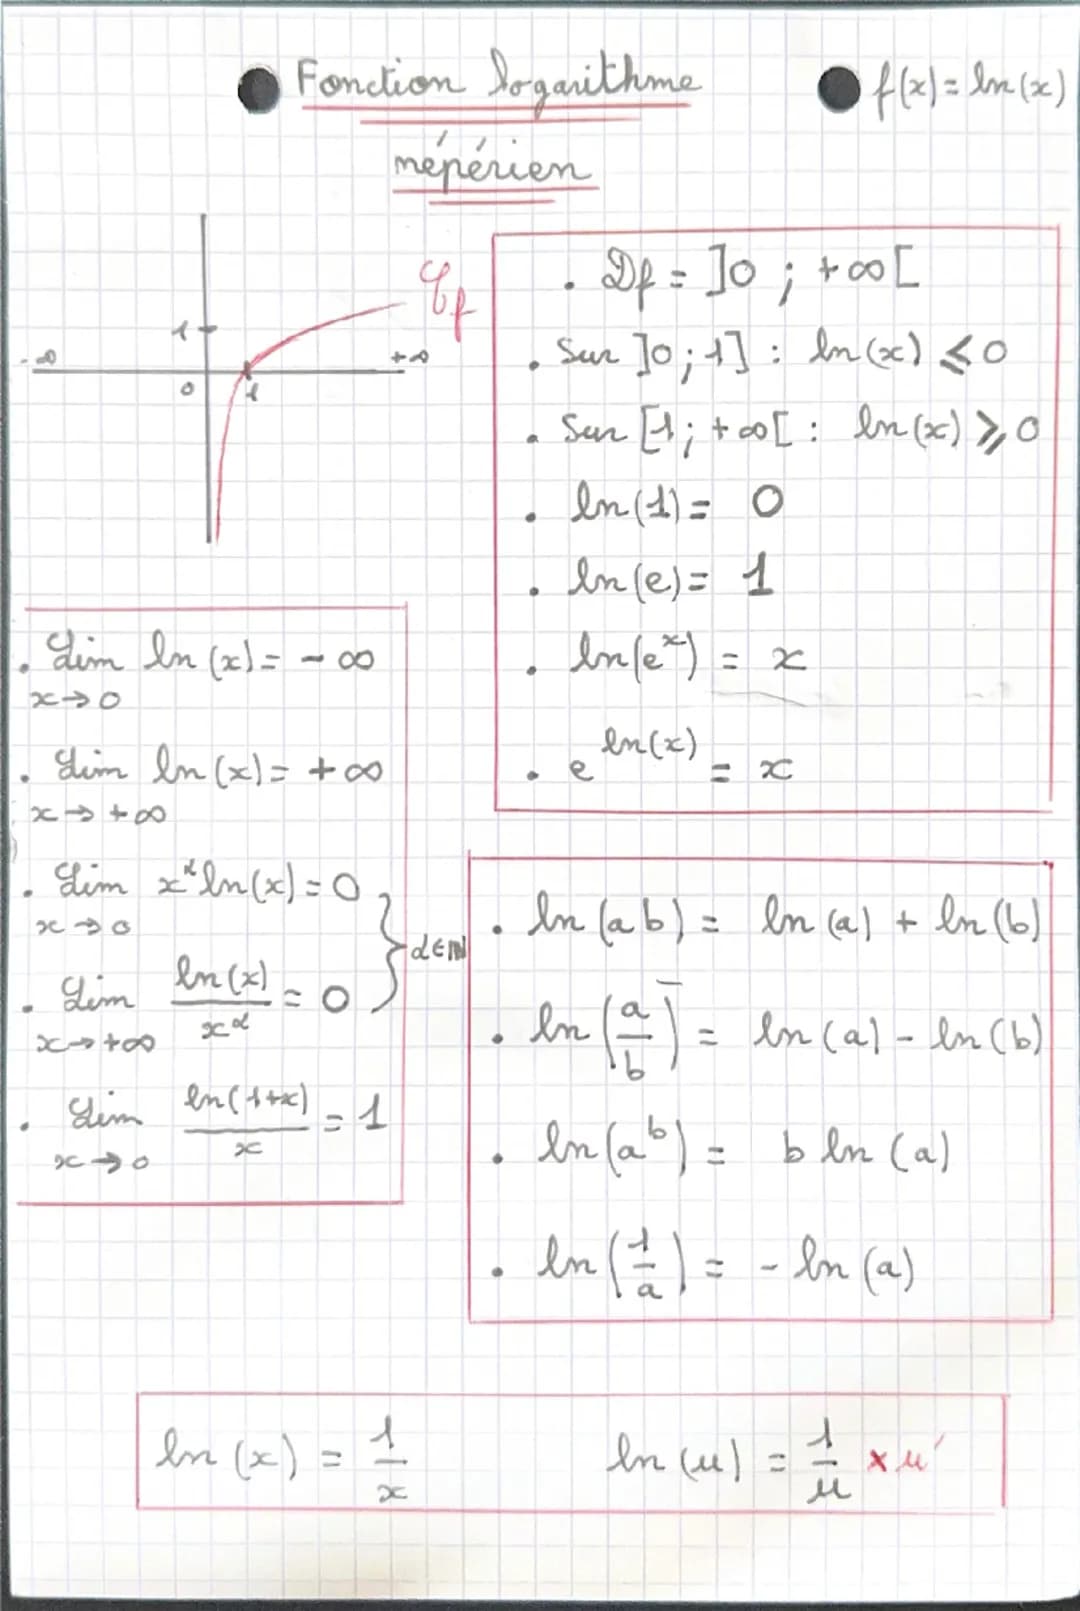 Fonction logarithme
népérien
f(x) = ln(x)
𝒞f
1
-∞
+∞
0
1
. Df = ]0 ; +∞[
. Sur ]0 ; 1] : ln(x) ⩽ 0
. Sur [1 ; +∞[ : ln(x) ⩾ 0
. ln(1) = 0
. ln(e) = 1
. ln(e^x) = x
. e^ln(x) = x
. Lim ln(x) = -∞
x→0
. Lim ln(x) = +∞
x→+∞
. Lim x^α ln(x) = 0
x→0
. Lim ln(x)/x^α = 0
x→+∞
} α∈ℕ
. Lim ln(1+x)/x = 1
x→0
. ln(ab) = ln(a) + ln(b)
. ln(a/b) = ln(a) - ln(b)
. ln(a^b) = b ln(a)
. ln(1/a) = - ln(a)
ln(x) = 1/x
ln(u) = 1/u × u'